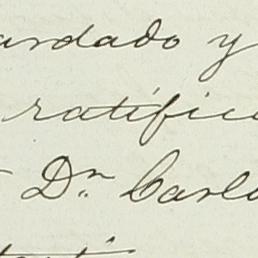 ardado y
ratific
Dn Carl